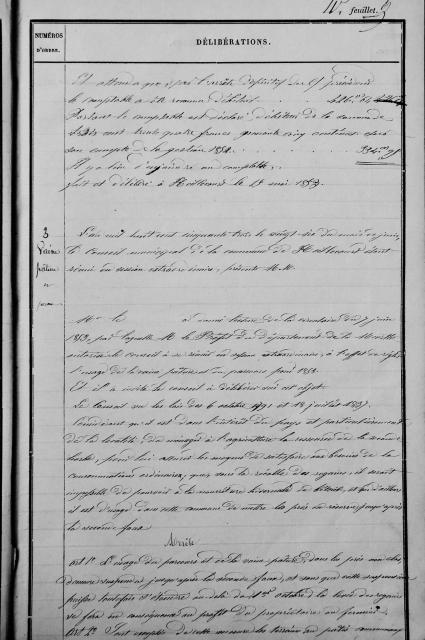 IV. feuillet.
NUMÉROS
D'ORDRE.
DÉLIBÉRATIONS.
Il attendu que par l'arrêté définitif du
le comptable a été reconnu débiteur
Partant le comptable est déclaré débiteur de la somme de
trois cent trente quatre francs quarante cinq centimes
son compte de la gestion 1852.
Il y a lieu d'enjoindre au comptable
fait et délibéré à le mai 1853.
3
Vaine
pâture
et
parcours
L'an mil huit cent cinquante trois le vingt six du mois de juin,
le Conseil municipal de la commune de étant
réuni en session extraordinaire, présents M.M.
Mr le a donné lecture de la circulaire du 7 juin
1853, par laquelle M. le Préfet du département de la Moselle
autorise le conseil à se réunir en session extraordinaire, à l'effet de régler
l'usage de la vaine pâture et du parcours pour 1853.
Et il a invité le conseil à délibérer sur cet objet.
Le Conseil vu les lois des 6 octobre 1791 et 18 juillet 1837.
Considérant qu'il est dans l'intérêt du pays et particulièrement
de la localité, de ménager à l'agriculture la ressource de la seconde
herbe, pour lui assurer les moyens de satisfaire aux besoins de la
consommation ordinaire, que, sans la récolte des regains, il serait
impossible de pourvoir à la nourriture hivernale du bétail, et que d'ailleurs
il est d'usage dans cette commune de mettre les prés en réserve jusqu'après
la seconde faux.
Arrête
Art 1er L'usage du parcours et de la vaine pâture, dans les prés non clos,
demeure suspendu jusqu'après la seconde faux, et sans que cette suspension
puisse toutefois s'étendre au delà du 1er octobre, la levée des regains
se fera en conséquence au profit du propriétaire ou fermier.
Art 2e Sont exceptés de cette mesure les terrains en pâtis communaux